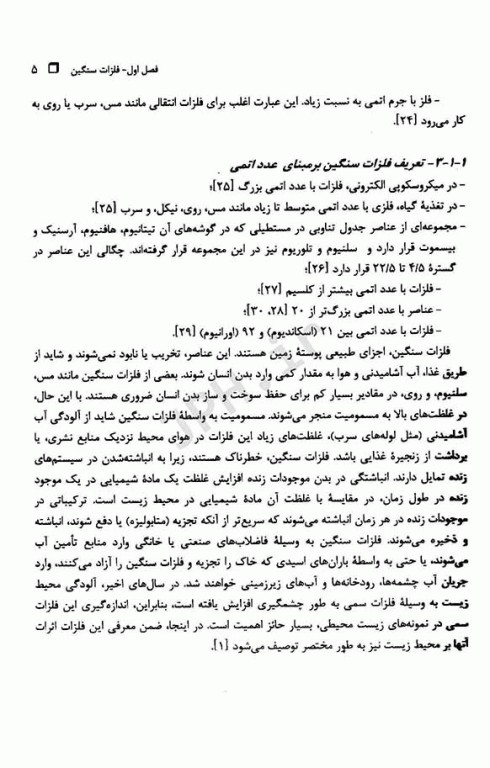 فصل اول- فلزات سنگین ❒ ۵
- فلز با جرم اتمی به نسبت زیاد. این عبارت اغلب برای فلزات انتقالی مانند مس، سرب یا روی به
کار می‌رود [۲۴].
۱-۱-۳- تعریف فلزات سنگین برمبنای عدد اتمی
- در میکروسکوپی الکترونی، فلزات با عدد اتمی بزرگ [۲۵]؛
- در تغذیهٔ گیاه، فلزی با عدد اتمی متوسط تا زیاد مانند مس، روی، نیکل، و سرب [۲۵]؛
- مجموعه‌ای از عناصر جدول تناوبی در مستطیلی که در گوشه‌های آن تیتانیوم، هافنیوم، آرسنیک و
بیسموت قرار دارد و سلنیوم و تلوریوم نیز در این مجموعه قرار گرفته‌اند. چگالی این عناصر در
گسترهٔ ۴/۵ تا ۲۲/۵ قرار دارد [۲۶]؛
- فلزات با عدد اتمی بیشتر از کلسیم [۲۷]؛
- عناصر با عدد اتمی بزرگ‌تر از ۲۰ [۲۸، ۳۰]؛
- فلزات با عدد اتمی بین ۲۱ (اسکاندیوم) و ۹۲ (اورانیوم) [۲۹].
فلزات سنگین، اجزای طبیعی پوستهٔ زمین هستند. این عناصر، تخریب یا نابود نمی‌شوند و شاید از
طریق غذا، آب آشامیدنی و هوا به مقدار کمی وارد بدن انسان شوند. بعضی از فلزات سنگین مانند مس،
سلنیوم و روی، در مقادیر بسیار کم برای حفظ سوخت و ساز بدن انسان ضروری هستند. با این حال،
در غلظت‌های بالا به مسمومیت منجر می‌شوند. مسمومیت به واسطهٔ فلزات سنگین شاید از آلودگی آب
آشامیدنی (مثل لوله‌های سرب)، غلظت‌های زیاد این فلزات در هوای محیط نزدیک منابع نشری، یا
برداشت از زنجیرهٔ غذایی باشد. فلزات سنگین، خطرناک هستند، زیرا به انباشته‌شدن در سیستم‌های
زنده تمایل دارند. انباشتگی در بدن موجودات زنده افزایش غلظت یک مادهٔ شیمیایی در یک موجود
زنده در طول زمان، در مقایسه با غلظت آن مادهٔ شیمیایی در محیط زیست است. ترکیباتی در
موجودات زنده در هر زمان انباشته می‌شوند که سریع‌تر از آنکه تجزیه (متابولیزه) یا دفع شوند، انباشته
و ذخیره می‌شوند. فلزات سنگین به وسیلهٔ فاضلاب‌های صنعتی یا خانگی وارد منابع تأمین آب
می‌شوند، یا حتی به واسطهٔ باران‌های اسیدی که خاک را تجزیه و فلزات سنگین را آزاد می‌کنند، وارد
جریان آب چشمه‌ها، رودخانه‌ها و آب‌های زیرزمینی خواهند شد. در سال‌های اخیر، آلودگی محیط
زیست به وسیلهٔ فلزات سمی به طور چشمگیری افزایش یافته است، بنابراین، اندازه‌گیری این فلزات
سمی در نمونه‌های زیست محیطی، بسیار حائز اهمیت است. در اینجا، ضمن معرفی این فلزات اثرات
آنها بر محیط زیست نیز به طور مختصر توصیف می‌شود [۱].